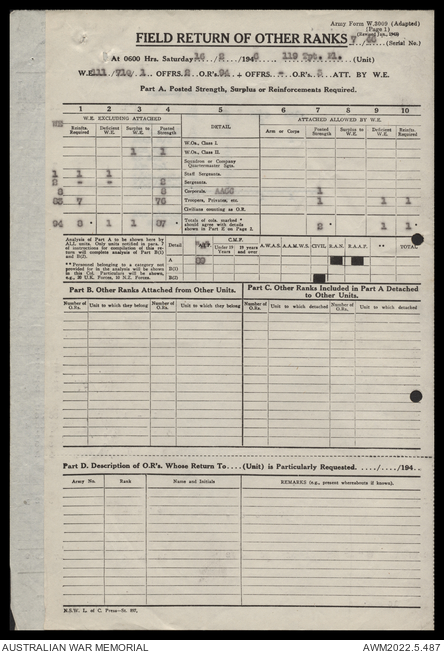 Army Form W.3009 (Adapted)
(Page 1)
(Revised Jan., 1943)
FIELD RETURN OF OTHER RANKS
(Serial No.)
At 0600 Hrs. Saturday 16 / 2 / 1946 119 Tpt. Pl. (Unit)
W.E. 111/710/1 OFFRS. 2 O.R's. 94 + OFFRS. - O.R's. 3 ATT. BY W.E.
Part A. Posted Strength, Surplus or Reinforcements Required.
1 2 3 4 5 6 7 8 9 10
W.E. EXCLUDING ATTACHED DETAIL ATTACHED ALLOWED BY W.E.
Reinfts. Required Deficient W.E. Surplus to W.E. Posted Strength Arm or Corps Posted Strength Surplus to W.E. Deficient W.E. Reinfts. Required
W.Os., Class I.
1 1 W.Os., Class II.
Squadron or Company Quartermaster Sgns.
1 1 1 Staff Sergeants.
2 - - 2 Sergeants.
8 8 Corporals. AACC 1
83 7 76 Troopers, Privates, etc. 1 1 1
Civilians counting as O.R.
94 8 * 1 1 87 * Totals of cols. marked * should agree with details shown in Part B on Page 2. 2 * 1 1 *
Analysis of Part A to be shown here by ALL units. Only units notified in para. 7 of instructions for compilation of this return will complete analysis of Part B(i) and B(ii).
**Personnel belonging to a category not provided for in the analysis will be shown in this Col. Particulars will be shown, e.g., 20 U.K. Forces, 10 N.Z. Forces.
Detail A.I.F. C.M.F. Under 19 Years 19 years and over A.W.A.S. A.A.M.W.S. CIVIL R.A.N. R.A.A.F. ** TOTAL
A 89
B(i)
B(ii)
Part B. Other Ranks Attached from Other Units.
Part C. Other Ranks Included in Part A Detached to Other Units.
Number of O.Rs. Unit to which they belong Number of O.Rs. Unit to which they belong Number of O.Rs. Unit to which detached Number of O.Rs. Unit to which detached
Part D. Description of O.R's. Whose Return To....(Unit) is Particularly Requested. ..../..../194..
Army No. Rank Name and Initials REMARKS (e.g., present whereabouts if known).
N.S.W. L. of C. Press—Sr. 807.
AUSTRALIAN WAR MEMORIAL
AWM2022.5.487